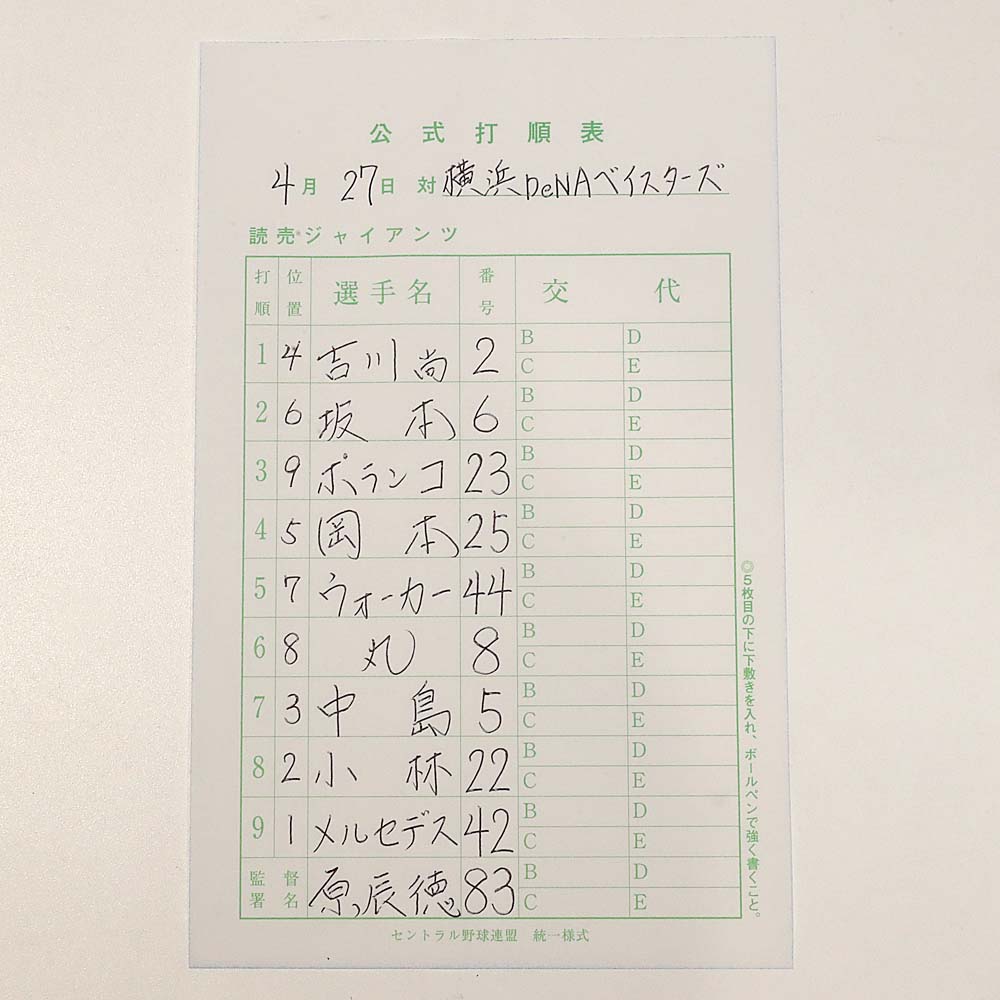 公式打順表
4月27日 対 横浜DeNAベイスターズ
読売ジャイアンツ
打順 位置 選手名 番号 交代
1 4 吉川尚 2 B D C E
2 6 坂本 6 B D C E
3 9 ポランコ 23 B D C E
4 5 岡本 25 B D C E
5 7 ウォーカー 44 B D C E
6 8 丸 8 B D C E
7 3 中島 5 B D C E
8 2 小林 22 B D C E
9 1 メルセデス 42 B D C E
監督署名 原辰徳 83 B D C E
セントラル野球連盟 統一様式
◎5枚目の下に下敷きを入れ、ボールペンで強く書くこと。